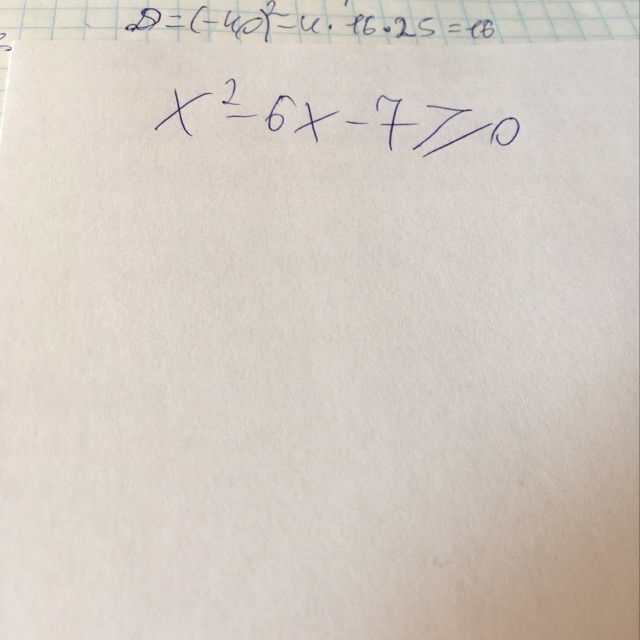 D=(-40)²-4·16·25=16
x²-6x-7⩾0